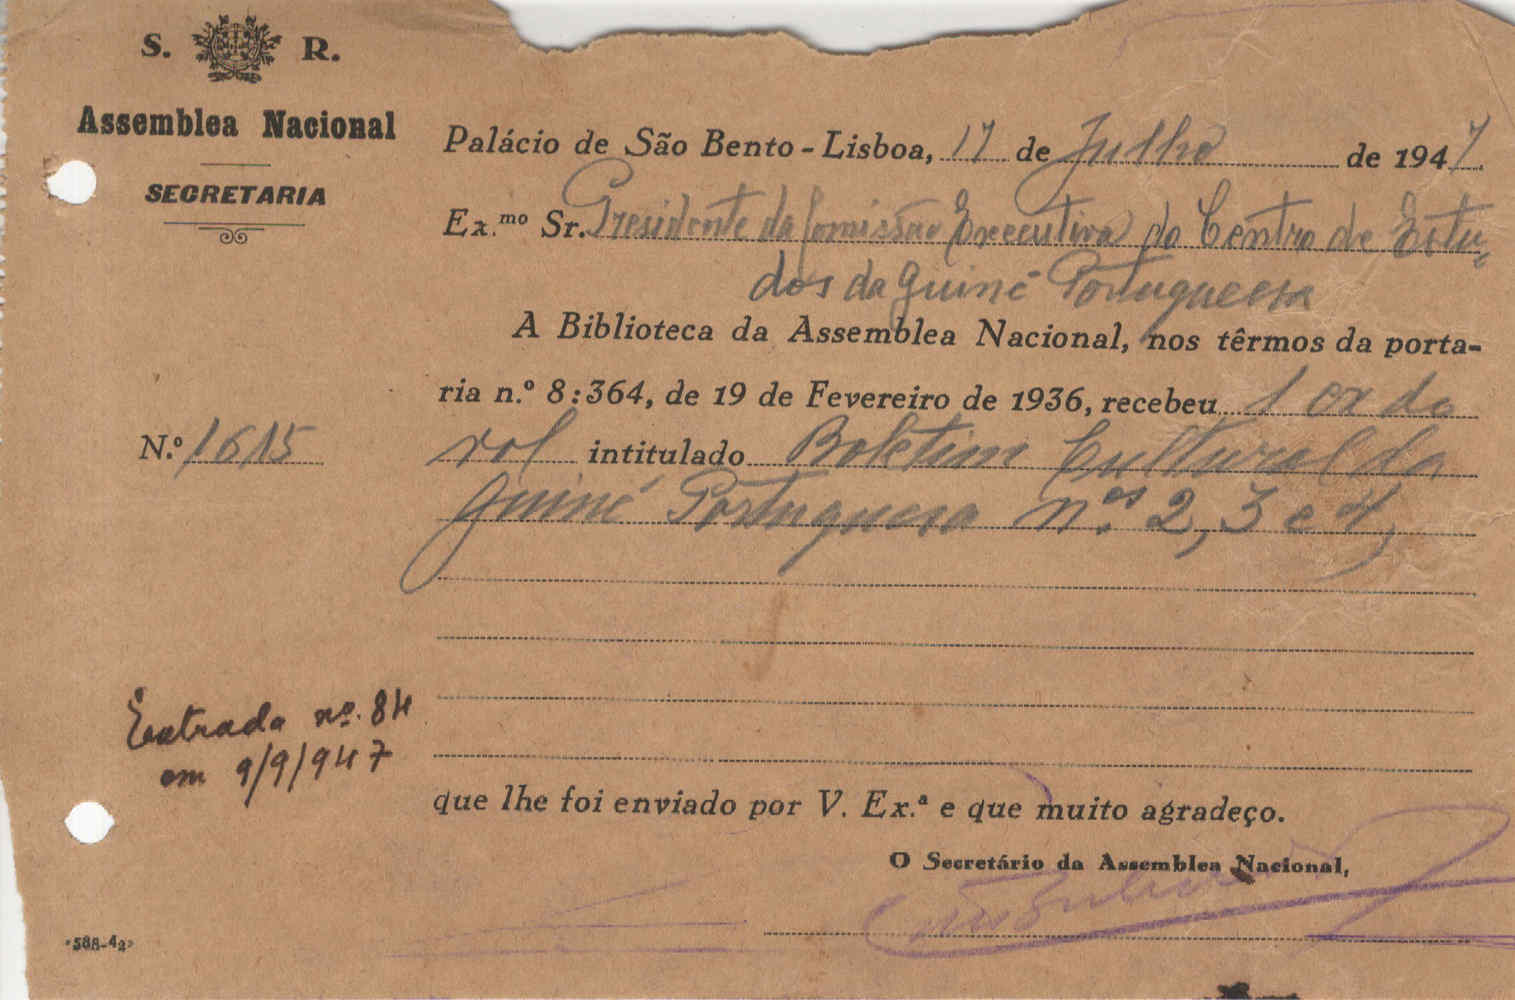 S. R.
Assemblea Nacional
SECRETARIA
Palácio de São Bento - Lisboa, 17 de Julho de 1947.
Ex.mo Sr. Presidente da Comissão Executiva do Centro de Estu-
dos da Guiné Portuguesa
A Biblioteca da Assemblea Nacional, nos têrmos da porta-
ria n.º 8:364, de 19 de Fevereiro de 1936, recebeu 1 ex do
N.º 1615
vol intitulado Boletim Cultural da
Guiné Portuguesa n.os 2, 3 e 4,
Entrada nº. 84
em 9/9/947
que lhe foi enviado por V. Ex.ª e que muito agradeço.
O Secretário da Assemblea Nacional,
«588-42»